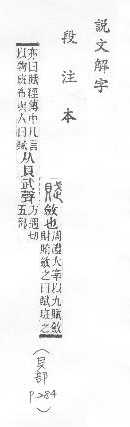 說文解字
段注本
賦斂也周禮大宰以九賦斂
財賄斂之曰賦班之
亦曰賦經傳中凡言
以物班布與人曰賦
从貝武聲方遇切
五部
(貝部
P284)